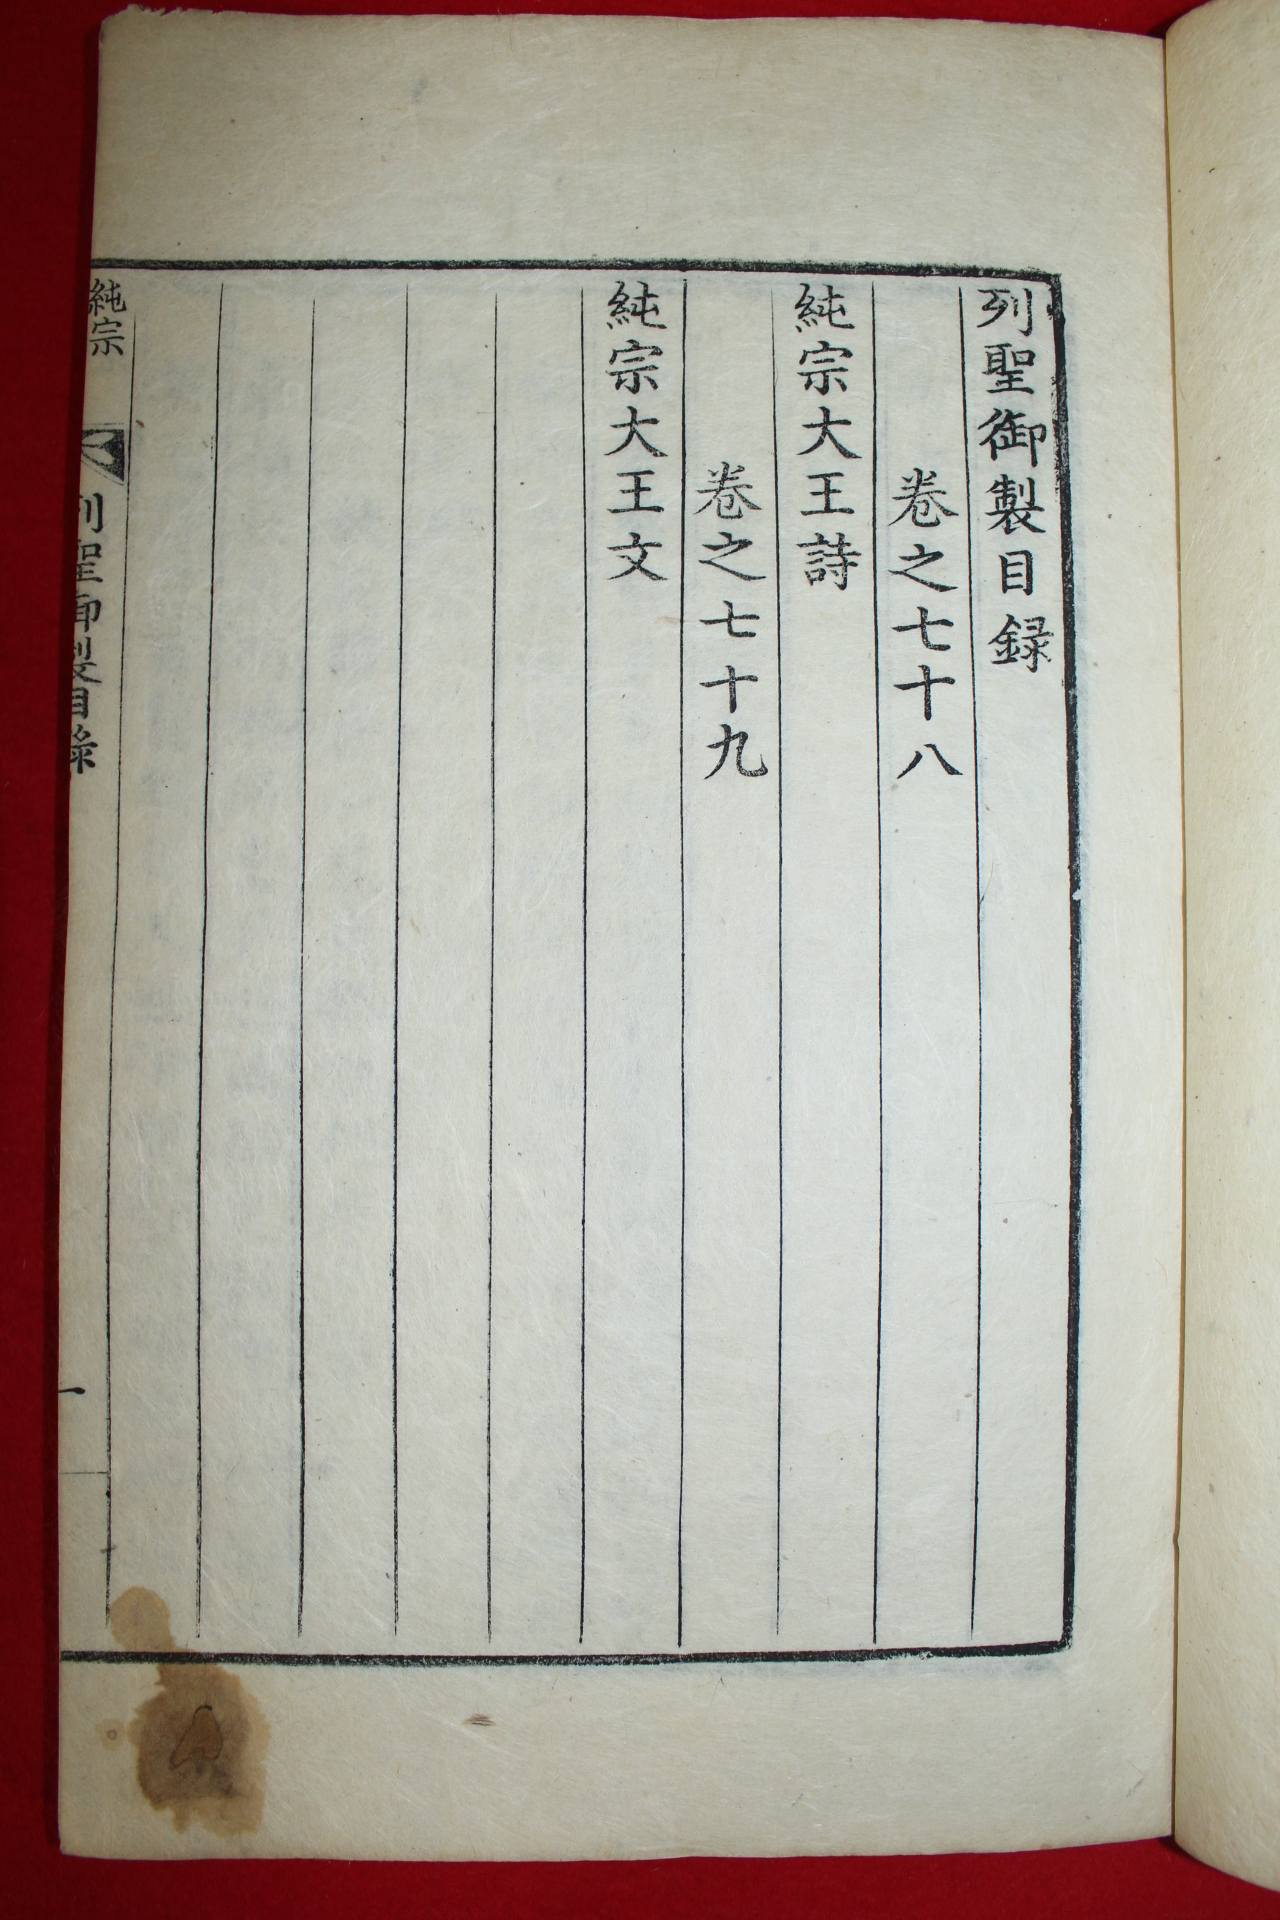 列聖御製目録
卷之七十八
純宗大王詩
卷之七十九
純宗大王文
純宗
列聖御製目錄
一